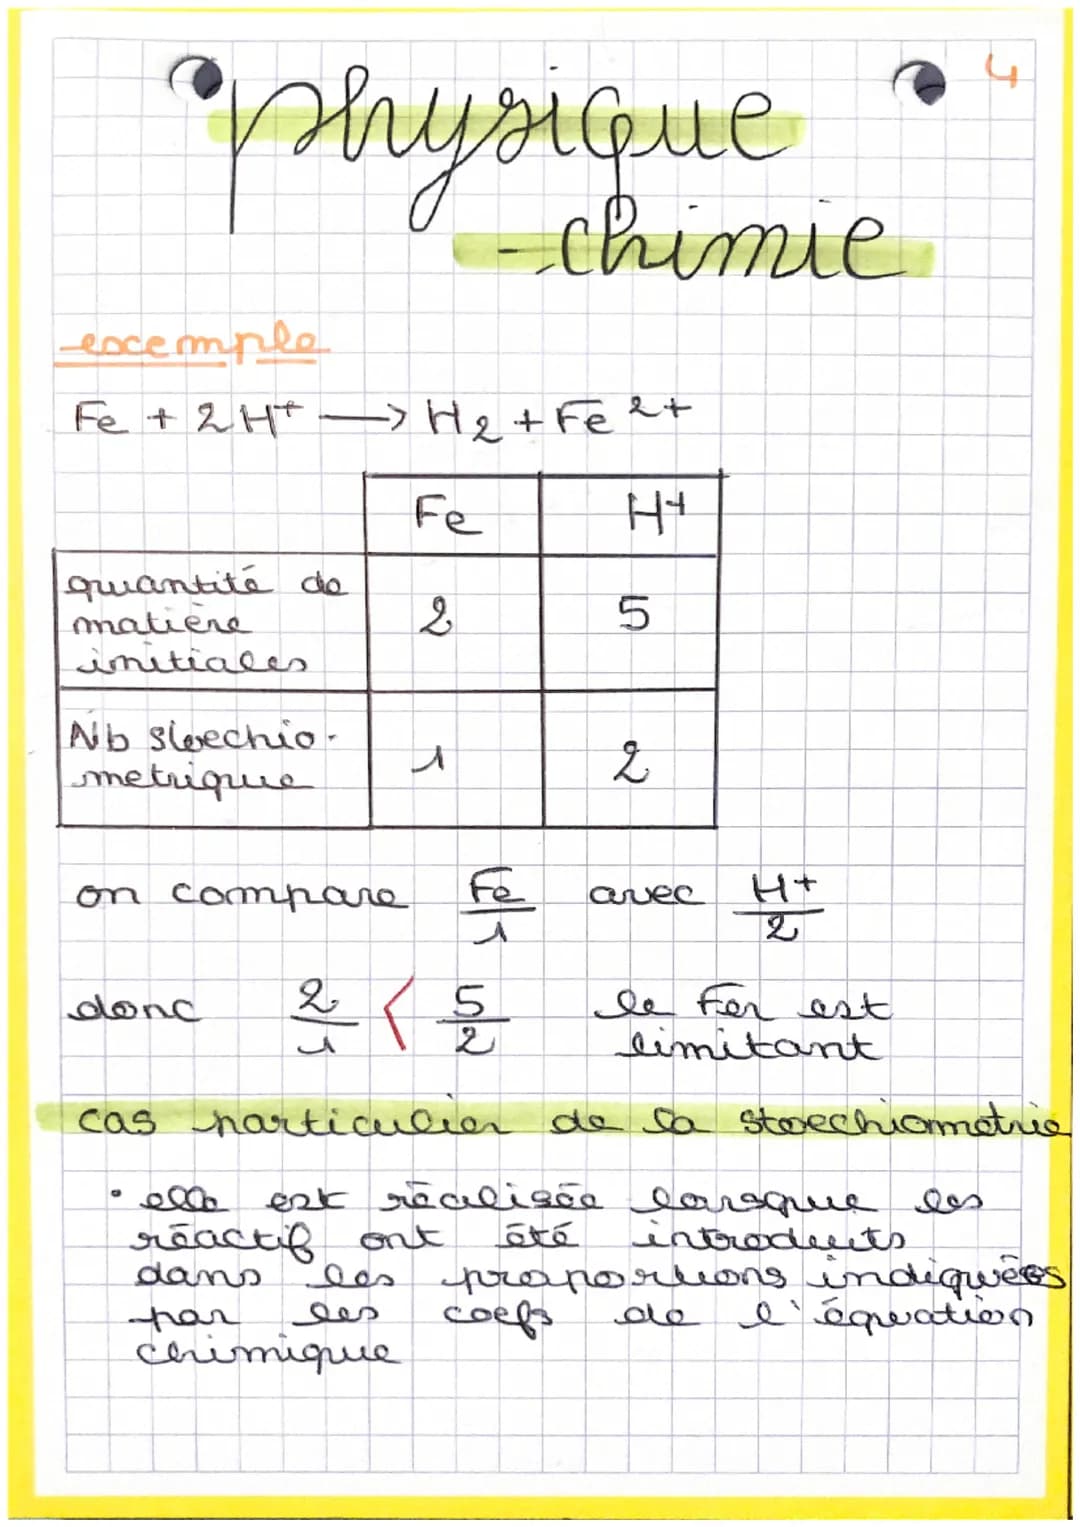 4
physique
-chimie
excemple
Fe + 2H+ → H2 + Fe 2+
Fe H+
quantité de matière initiales 2 5
Nb stoechio-metrique 1 2
on compare Fe/1 avec H+/2
donc 2/1 < 5/2 le Fer est
limitant
cas particulier de la stoechiometrie
• elle est réalisée lorsque les
réactif ont été introduits
dans les proportions indiquées
par les coefs de l'équation
chimique